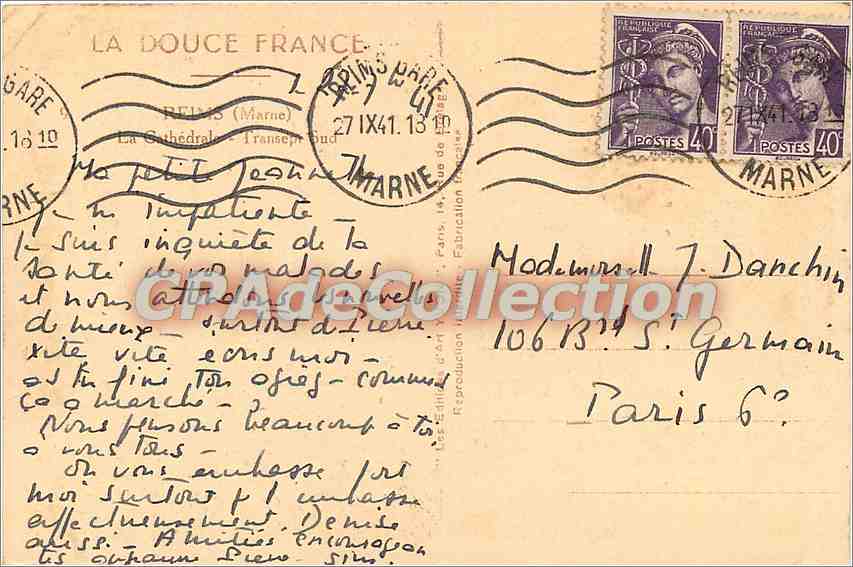 LA DOUCE FRANCE
REIMS (Marne)
La Cathédrale - Transept Sud
GARE
.18 10
RNE
REIMS GARE
27 IX 41. 18 10
MARNE
RÉPUBLIQUE FRANÇAISE
POSTES 40c
RÉPUBLIQUE FRANÇAISE
POSTES 40c
27 IX 41. 18
MARNE
Ma petite Jeannette
impatiente -
Je suis inquiète de la
santé de vos malades
et nous attendons nouvelles
de mieux - surtout de Pierre
vite vite écris moi -
as tu fini ton agreg - comment
ça a marché - ?
Nous pensons beaucoup à toi,
à vous tous -
On vous embrasse fort
moi surtout
affectueusement. Denise
aussi - Amitiés
Les Editions d'Art Paris, 14, Rue de
Reproduction interdite - Fabrication Française
Mademoiselle J. Danchin
106 Bd St Germain
Paris 6e
CPAdeCollection